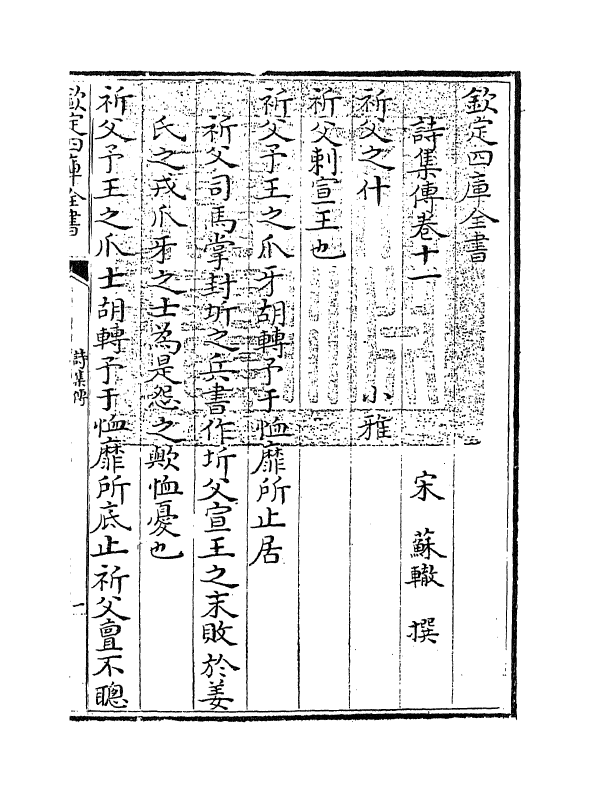 欽定四庫全書
詩集傳卷十一
宋 蘇轍 撰
祈父之什 小雅
祈父刺宣王也
祈父予王之爪牙胡轉予于恤靡所止居
祈父司馬掌封圻之兵書作圻父宣王之末敗於姜
氏之戎爪牙之士為是怨之歟恤憂也
祈父予王之爪士胡轉予于恤靡所底止祈父亶不聰
欽定四庫全書
詩集傳
一